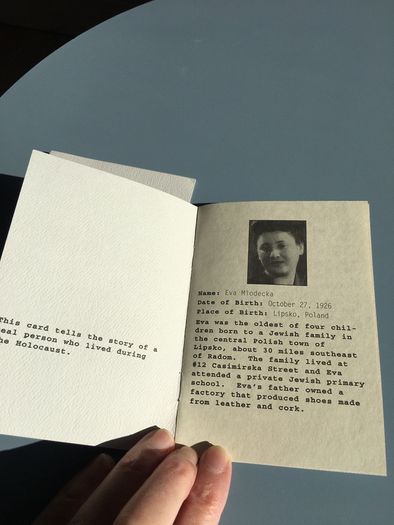 This card tells the story of a
real person who lived during
the Holocaust.
Name: Eva Mlodecka
Date of Birth: October 27, 1926
Place of Birth: Lipsko, Poland
Eva was the oldest of four chil-
dren born to a Jewish family in
the central Polish town of
Lipsko, about 30 miles southeast
of Radom. The family lived at
#12 Casimirska Street and Eva
attended a private Jewish primary
school. Eva's father owned a
factory that produced shoes made
from leather and cork.